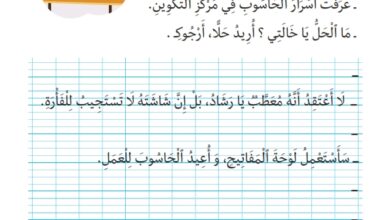 ـ عَرَفْتُ أَسْرَارَ الْحَاسُوبِ فِي مَرْكَزِ التَّكْوِينِ.
ـ مَا الْحَلُّ يَا خَالَتِي ؟ أُرِيدُ حَلًّا، أَرْجُوكِ .
ـ
ـ لَا أَعْتَقِدُ أَنَّهُ مُعَطَّبٌ يَا رَشَادُ، بَلْ إِنَّ شَاشَتَهُ لَا تَسْتَجِيبُ لِلْفَأْرَةِ.
ـ
ـ سَأَسْتَعْمِلُ لَوْحَةَ الْمَفَاتِيحِ، وَ أُعِيدُ الْحَاسُوبَ لِلْعَمَلِ.
ـ